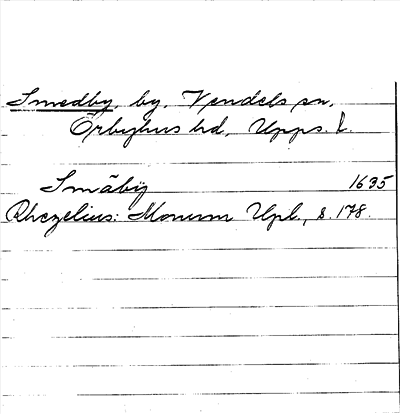 Smedby, by, Vendels sn,
Örbyhus hd, Upps. l.
Smäbÿ 1635
Rhezelius: Monum Upl., s. 178.